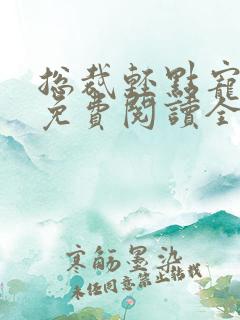 總裁輕點寵
免費閱讀全
寒舫墨染
未经同意禁止转载